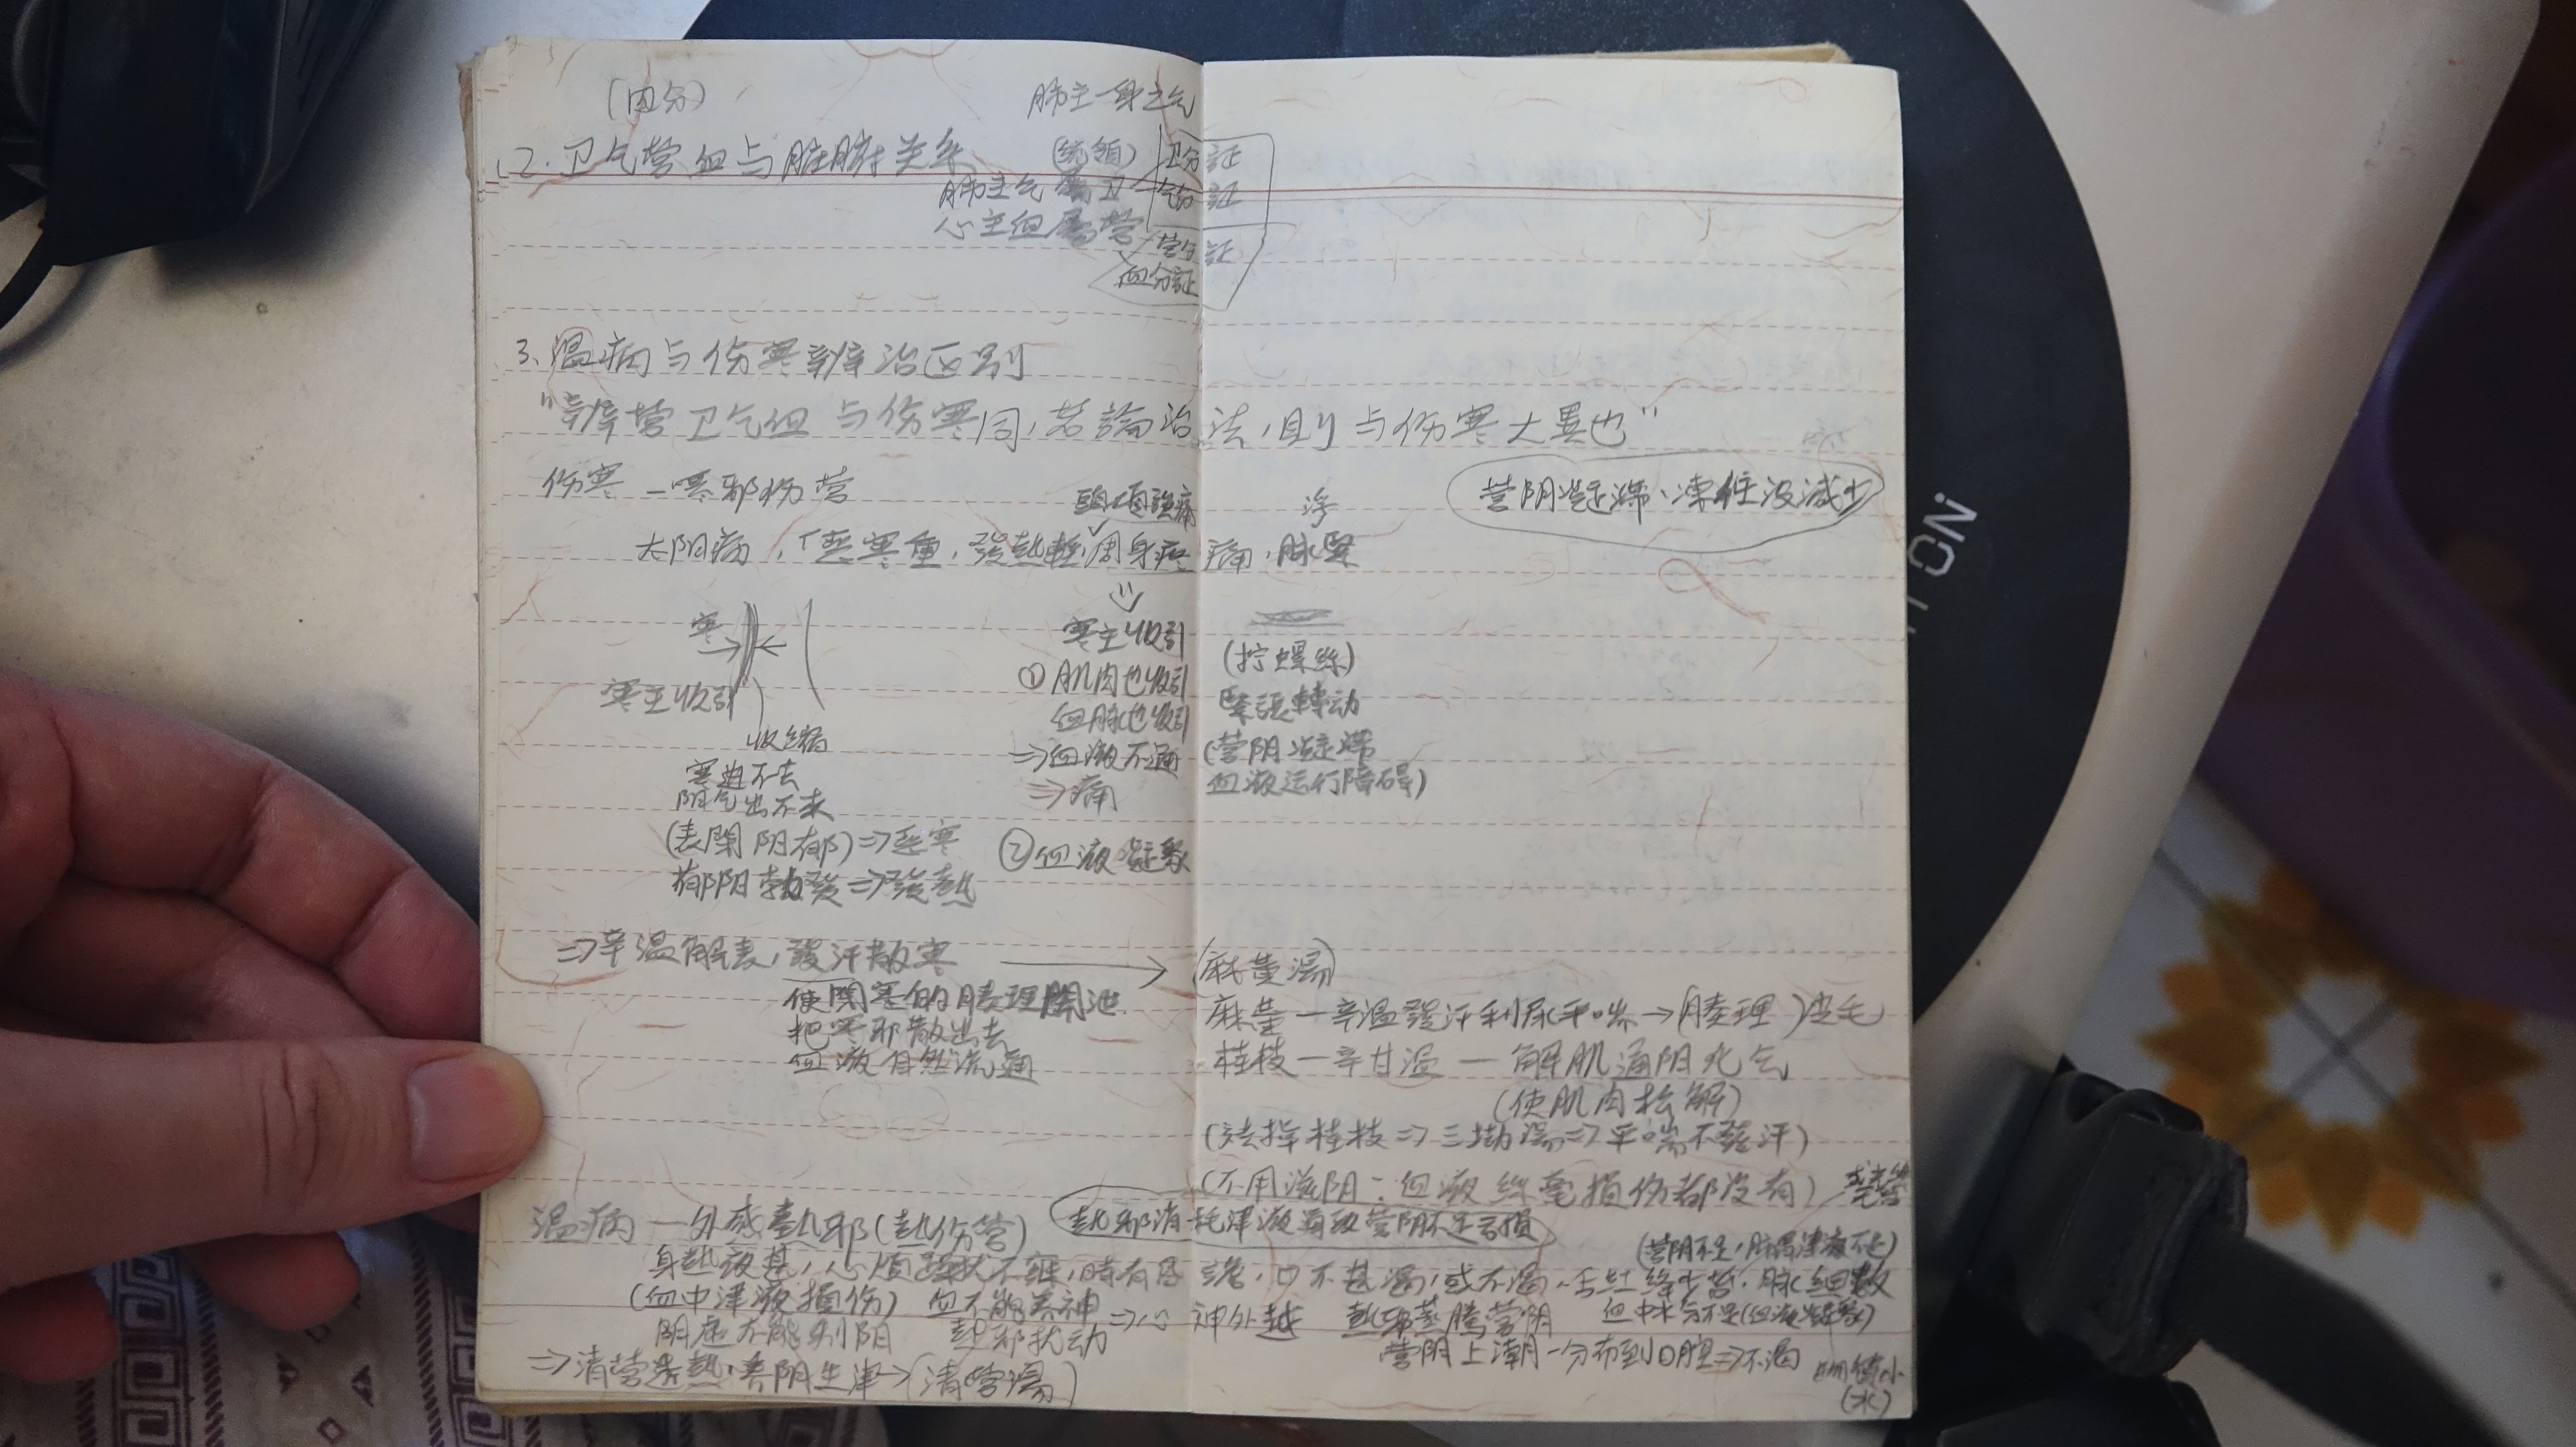 肺主一身之气
2. 卫气营血与脏腑关系
(统领)
卫分証
肺主气属卫
气分証
心主血属营
营分証
血分証
3、温病与伤寒辨治区别
"辨营卫气血与伤寒同,若論治法,则与伤寒大異也"
伤寒 — 寒邪伤营
营阴凝滞、津液没減少
頭項强痛
浮
太阳病,恶寒重,發热輕,周身疼痛,脉緊
寒
寒主收引
收缩
寒主收引
① 肌肉也收引
血脉也收引
⇒血液不通
⇒痛
② 血液凝聚
(拧螺丝)
緊張轉动
(营阴凝滞
血液运行障碍)
寒迫不去
阳气出不来
(表闭阳郁)⇒恶寒
郁阳勃發⇒發熱
⇒辛温解表,發汗散寒
使閉塞的腠理開泄
把寒邪散出去
血液自然流通
(麻黄湯)
麻黄—辛温發汗利尿平喘→(腠理)皮毛
桂枝—辛甘温—解肌通阳化气
(使肌肉松解)
(去掉桂枝⇒三拗湯⇒平喘不發汗)
(不用滋阴:血液丝毫損伤都没有)
温病—外感熱邪(热伤营)
热邪消耗津液導致营阴不足亏損
身热夜甚,心煩躁扰不寐,時有谵語,口不甚渴,或不渴、舌红绛少苔,脉細数
(血中津液損伤)
血不能养神
热邪扰动
⇒心神外越
热邪蒸腾营阴
营阴上潮—分布到口腔⇒不渴
血中水分不足(血液凝聚)
⇒清营透热,養阴生津→(清营湯)
(水)
ON